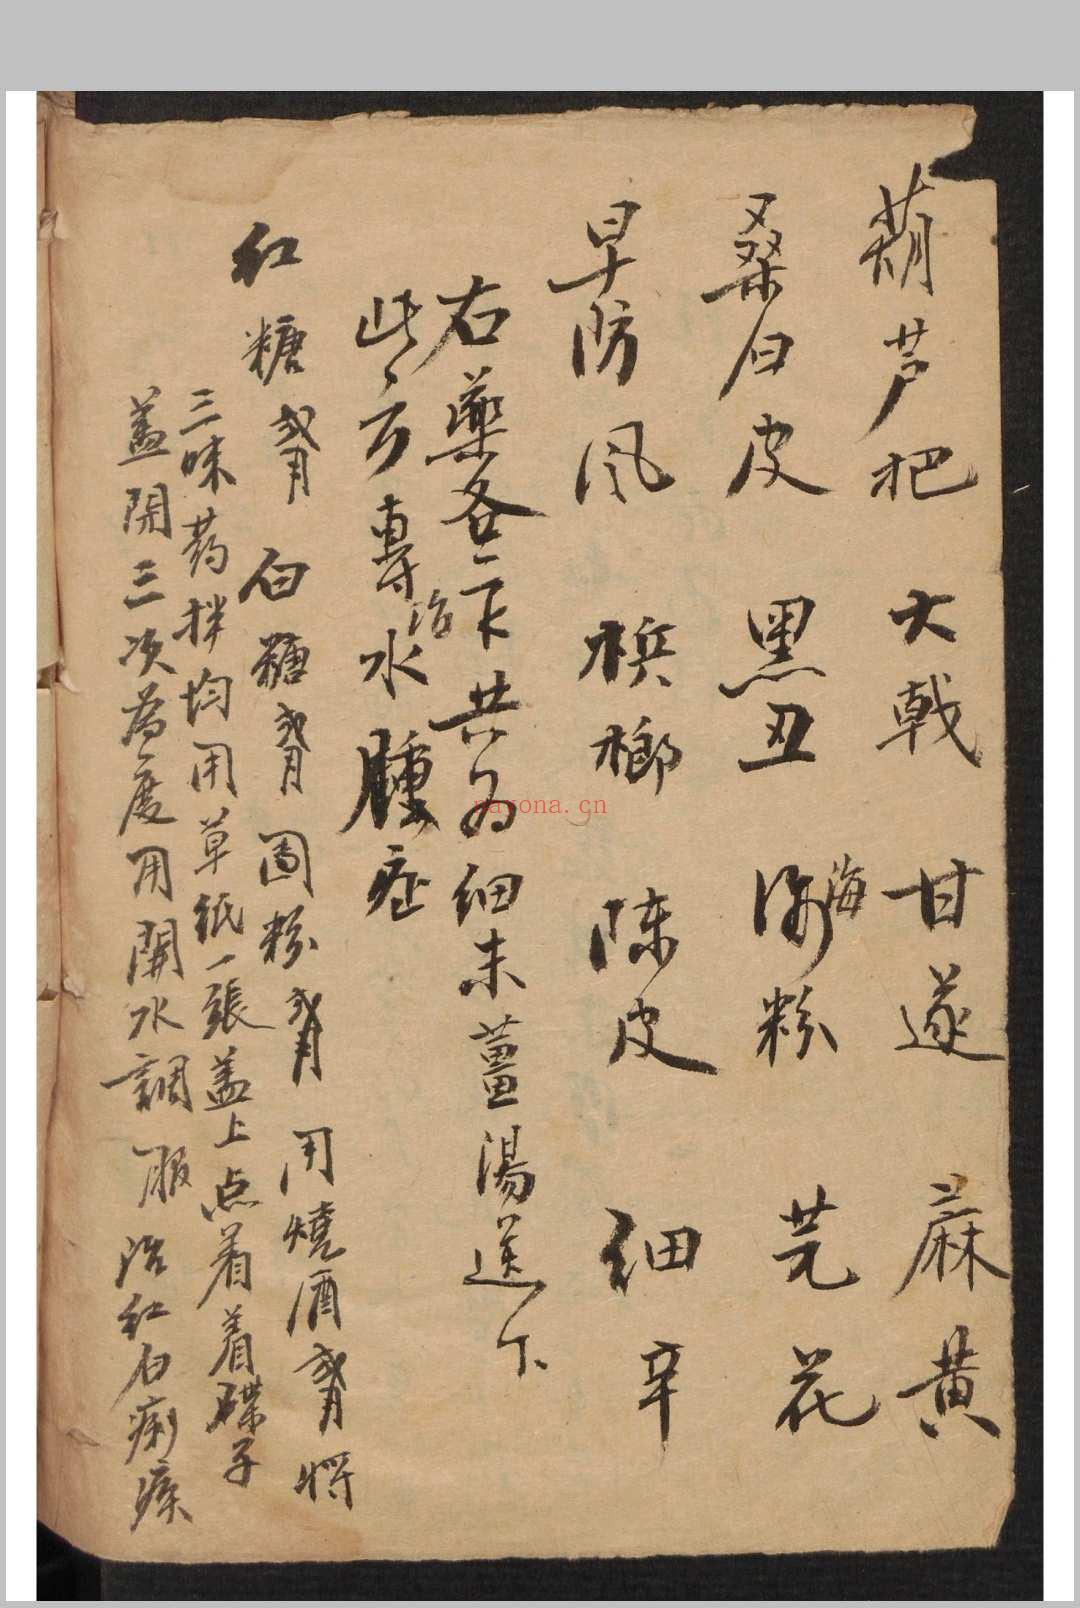 葫芦把 大戟 甘遂 麻黄
桑白皮 黑丑 海粉 芫花
旱防风 槟榔 陈皮 细辛
右藥各一下 共为细末薑湯送下
此方專治水腫症
红糖 白糖 粉 用燒酒 将
三味药拌均用草纸一張盖上点着着碟子
盖開三次為度用開水調服治红白痢疾
nayona.cn